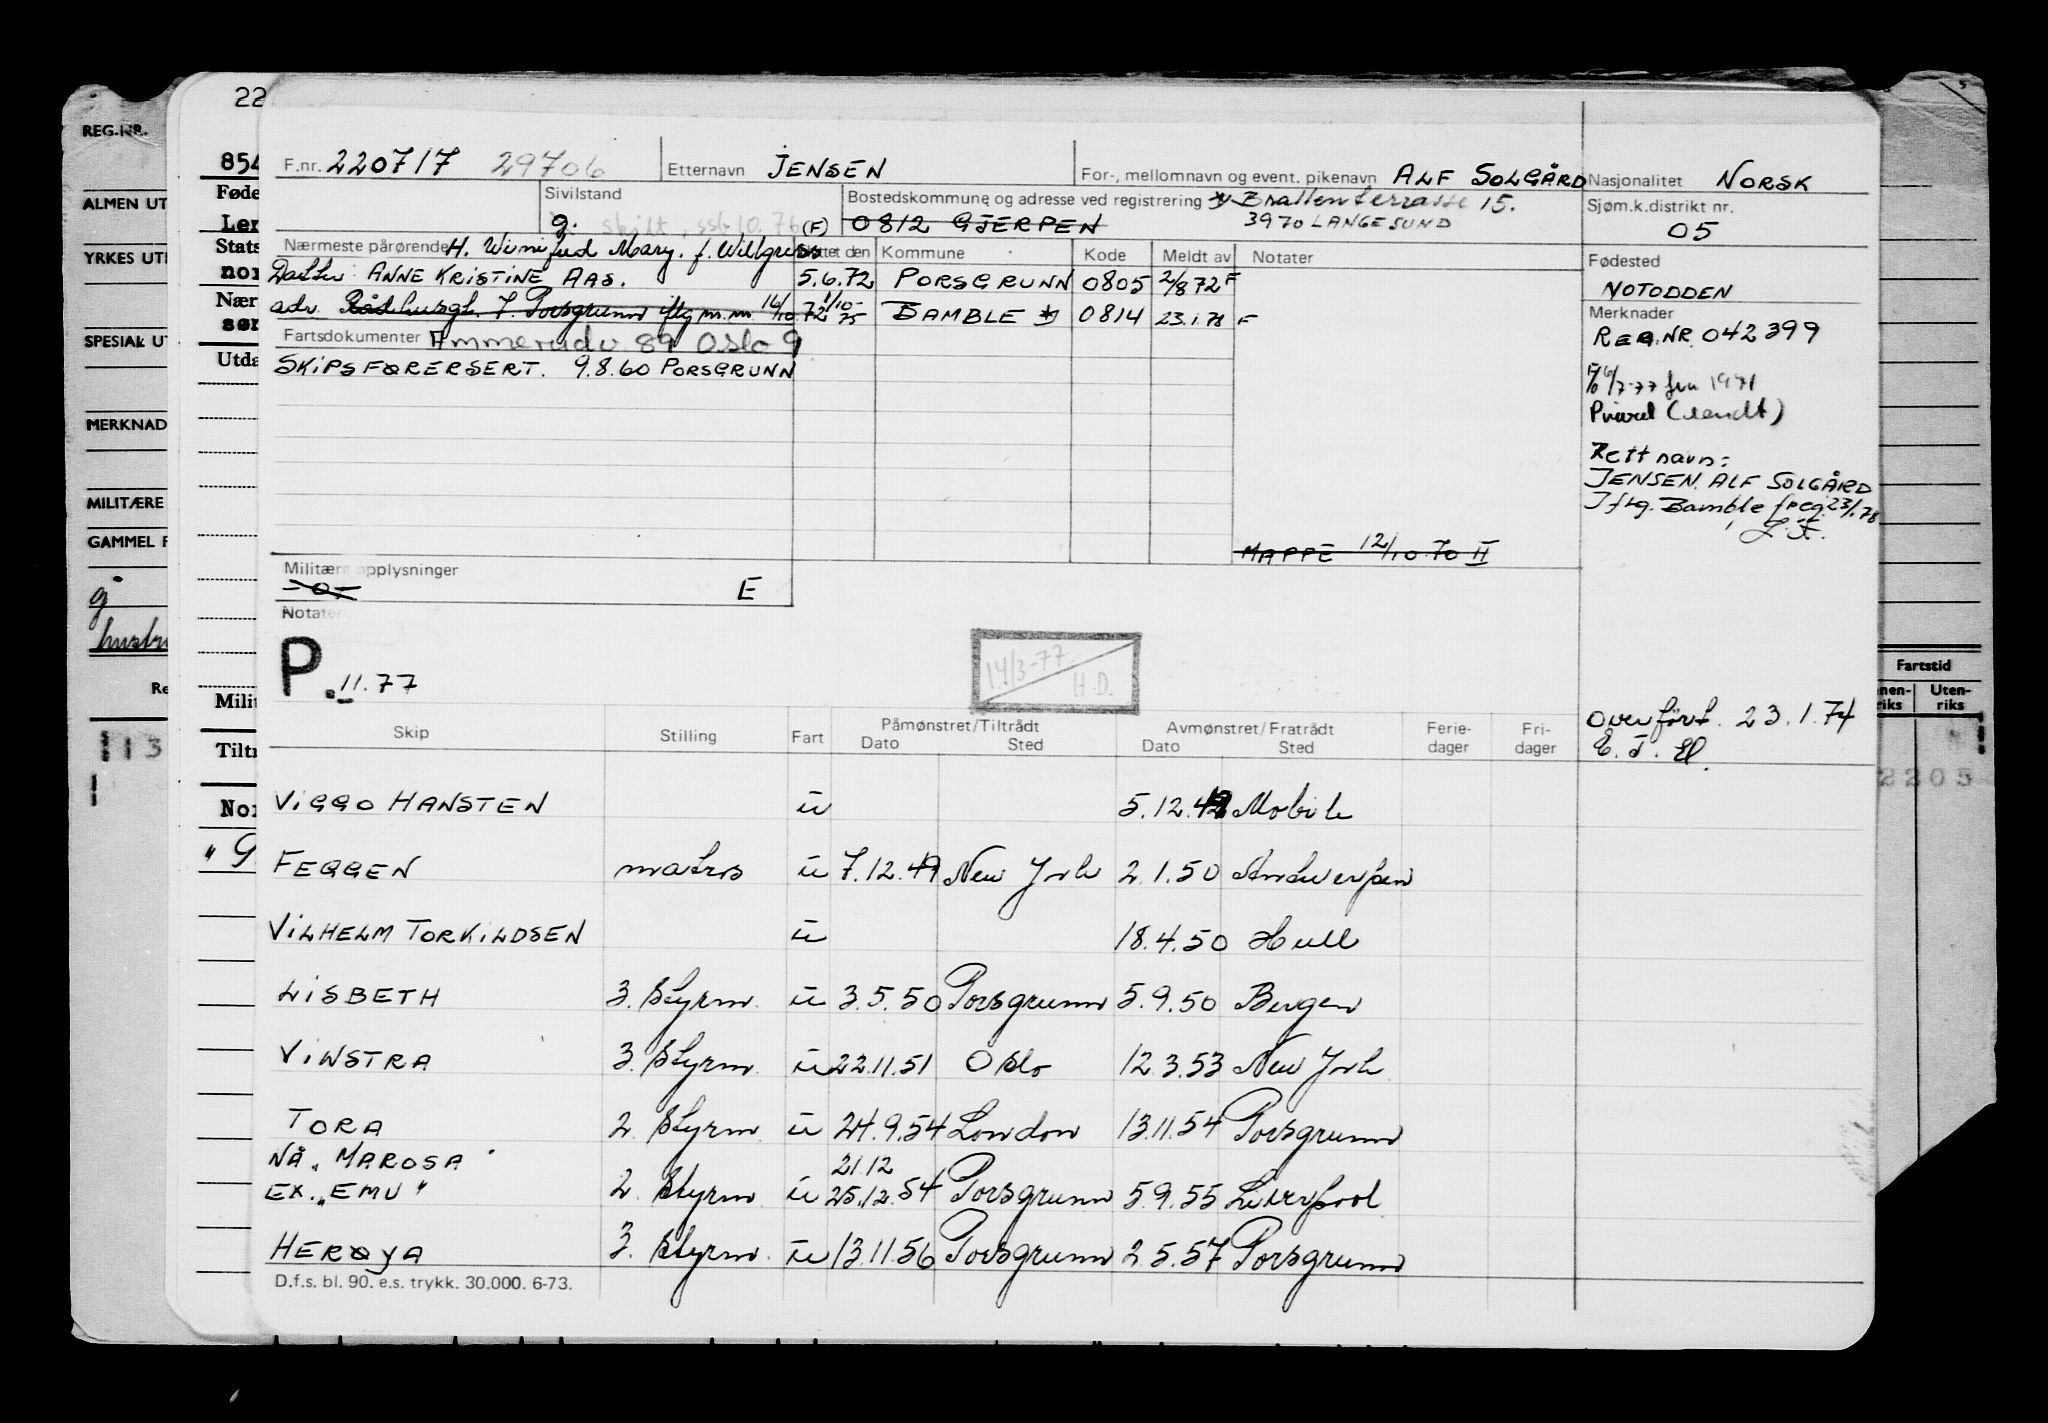 22
REG.NR.
ALMEN UT
YRKES UT
SPESIAL U
MERKNAD
MILITÆRE
GAMMEL F
g
hustru
Re
113
854
Føde
Ler
Stats
nor
Nær
sør
Utda
Milit
Tiltr
Nor
" G
F.nr. 220717 29706 Etternavn JENSEN For-, mellomnavn og event. pikenavn ALF SOLGÅRD Nasjonalitet NORSK
Sivilstand Bostedskommune og adresse ved registrering Brattenterrasse 15. Sjøm.k.distrikt nr.
g. skilt, 10.76 (F) 0812 GJERPEN 3970 LANGESUND 05
Nærmeste pårørende H. Winifred Mary. f. Willgress Flyttet den Kommune Kode Meldt av Notater Fødested
Datter ANNE KRISTINE AAS. 5.6.72 PORSGRUNN 0805 2/8 72 F NOTODDEN
adr. Rådhusgt. 7. Porsgrunn iflg m.m. 16/10 72 1/10-75 BAMBLE 0814 23.1.78 F Merknader
Fartsdokumenter Ammerudv. 89 Oslo 9 REG.NR 042399
SKIPSFØRERSERT. 9.8.60 PORSGRUNN
6/7-77 fra 1971
Rett navn:
JENSEN. ALF SOLGÅRD
Iflg. Bamble freg. 23/1.78
MAPPE 12/10.70 II
Militære opplysninger
-0- E
Notater
P. 11.77
14/3-77
H.D.
Fartstid
nen-riks Uten-riks
Overført. 23.1.74
2205
Skip Stilling Fart Påmønstret/Tiltrådt Avmønstret/Fratrådt Ferie- Fri-
Dato Sted Dato Sted dager dager
VIGGO HANSTEN u 5.12.42 Mobile
FEGGEN matros u 7.12.49 New York 2.1.50 Antwerpen
VILHELM TORKILDSEN u 18.4.50 Hull
LISBETH 3. styrm. u 3.5.50 Porsgrunn 5.9.50 Bergen
VINSTRA 3. styrm. u 22.11.51 Oslo 12.3.53 New York
TORA 2. styrm. u 24.9.54 London 13.11.54 Porsgrunn
NÅ "MAROSA" 21.12
EX. "EMU" 2. styrm u 25.12.54 Porsgrunn 5.9.55 Liverpool
HERØYA 3. styrm. u 13.11.56 Porsgrunn 2.5.57 Porsgrunn
D.f.s. bl. 90. e.s. trykk. 30.000. 6-73.